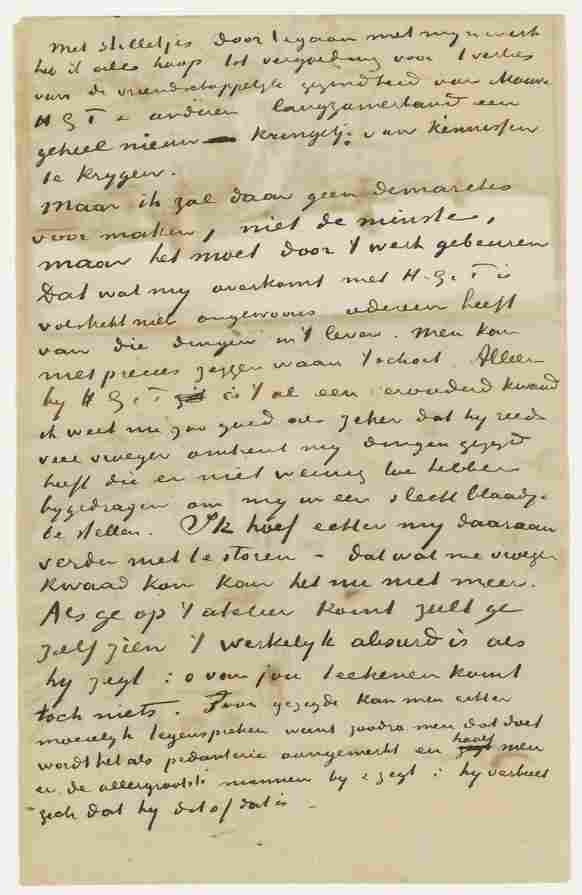 met stilletjes door te gaan met mijn werk
heb ik alle hoop tot vergoeding voor 't verlies
van de vriendschappelijke gezindheid van Mauve
H G T & anderen langzamerhand een
geheel nieuw kringetje van kennissen
te krijgen.
Maar ik zal daar geen demarches
voor maken, niet de minste,
maar het moet door 't werk gebeuren
Dat wat mij overkomt met H.G.T is
volstrekt niet ongewoons iedereen heeft
van die dingen in 't leven. Men kan
niet precies zeggen waar 't schort. Alleen
bij H.G.T. is 't al een verouderd kwaad
ik weet nu zoo goed als zeker dat hij reeds
veel vroeger omtrent mij dingen gezegd
heeft die er niet weinig toe hebben
bijgedragen om mij in een slecht blaadje
te stellen. Ik hoef echter mij daaraan
verder niet te storen – dat wat me vroeger
kwaad kon kan het nu niet meer.
Als ge op 't atelier komt zult ge
zelf zien 't werkelijk absurd is als
hij zegt : o van jou teekenen komt
toch niets. gezegde kan men echter
moeielijk tegenspreken want zoodra men dat doet
wordt het als pedanterie aangemerkt en heeft men
er de allergrootste mannen bij & zegt : hij verbeet
zich dat hij dit of dat is –